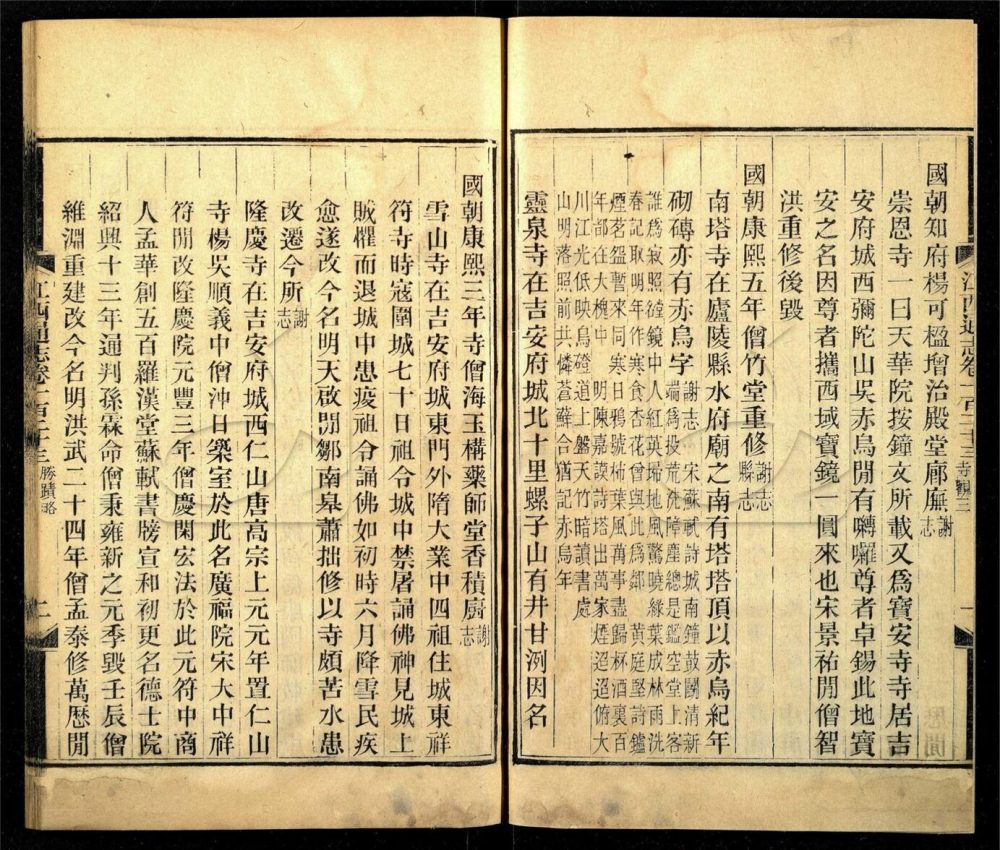 國朝知府楊可楹增治殿堂廊廡謝志
崇恩寺一曰天華院按鐘文所載又爲寶安寺寺居吉
安府城西彌陀山吳赤烏閒有囀囉尊者卓錫此地寶
安之名因尊者攜西域寶鏡一圓來也宋景祐閒僧智
洪重修後毀
國朝康熙五年僧竹堂重修謝志縣志
南塔寺在廬陵縣水府廟之南有塔塔頂以赤烏紀年
砌磚亦有赤烏字謝志
宋蘇軾詩城南鐘鼓鬬清新
端爲投荒洗障塵總是鑑空堂上客
誰爲寂照鏡中人紅英掃地風驚曉綠葉成林雨洗
春記取明年作寒食杏花曾與此爲鄰
黃庭堅詩鑪
煙茗盌暫來同寒日鴉號柿葉風萬事盡歸杯酒裏百
年都在大槐中
明陳嘉謨詩塔出萬家煙迢迢俯大
川江光低映鳥磴道上盤天竹暗讀書處
山明落照前共憐蒼蘚合猶記赤烏年
靈泉寺在吉安府城北十里螺子山有井甘洌因名
江西通志卷一百二十三 寺觀三 一
國朝康熙三年寺僧海玉構藥師堂香積廚謝志
雪山寺在吉安府城東門外隋大業中四祖住城東祥
符寺時寇圍城七十日祖令城中禁屠誦佛神見城上
賊懼而退城中患疫祖令誦佛如初時六月降雪民疾
愈遂改今名明天啟閒鄒南皋蕭拙修以寺頗苦水患
改遷今所謝志
隆慶寺在吉安府城西仁山唐高宗上元元年置仁山
寺楊吳順義中僧沖日築室於此名廣福院宋大中祥
符閒改隆慶院元豐三年僧慶閑宏法於此元符中商
人孟華創五百羅漢堂蘇軾書牓宣和初更名德士院
紹興十三年通判孫霖命僧秉雍新之元季毀壬辰僧
維淵重建改今名明洪武二十四年僧孟泰修萬厯閒
江西通志卷一百二十三 勝蹟略 二